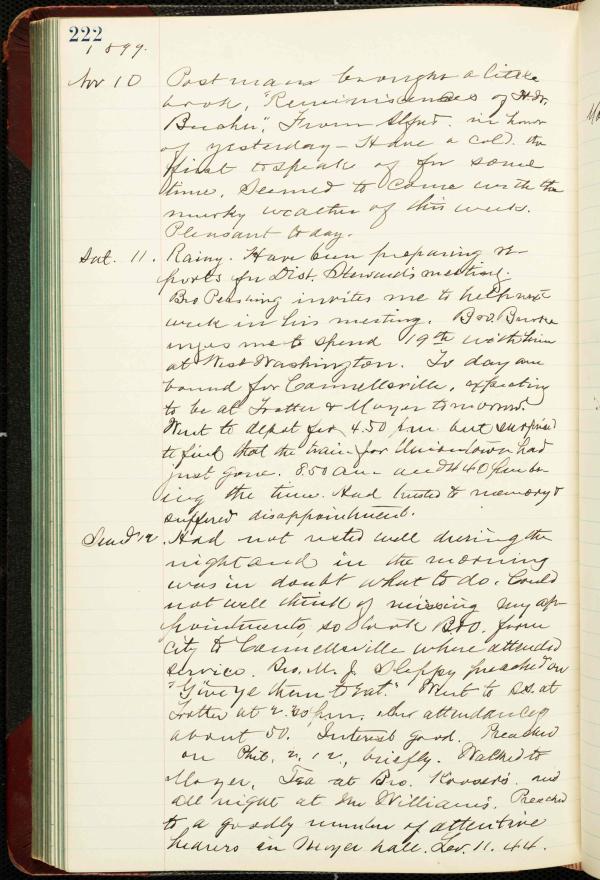 222
1899.
Nov 10 Postman brought a little
book, "Reminiscences of H. W.
Beecher", From Alfred. in honor
of yesterday - Have a cold. the
first to speak of for some
time. Seemed to come with the
murky weather of this week.
Pleasant today.
Sat. 11. Rainy. Have been preparing re-
ports for Dist. Steward's meeting.
Bro Pershing invites me to help next
week in his meeting. Bro. Burke
urges me to spend 19th with him
at West Washington. To day am
bound for Connellsville, expecting
to be at Trotter & Moyer tomorrow.
Went to depot for 4.50 p.m. but surprised
to find that the train for Uniontown had
just gone. 8.50 a.m. and 4.40 p.m. be-
ing the time. Had trusted to memory &
suffered disappointment.
Sund 12. Had not rested well during the
night and in the morning
was in doubt what to do. Could
not well think of missing my ap-
pointments, so took B&O. from
city to Connellsville where attended
service. Bro. M. J. Sleppy preached on
"Give ye them to Eat." Went to S.S. at
Trotter at 2.30 p.m. attendance
about 50. Interest good. Preached
on Phil. 2, 12, briefly. Walked to
Moyer. Tea at Bro. Kooser's. and
all night at Mr Williams'. Preached
to a goodly number of attentive
hearers in Moyer hall. Lev. 11. 44.